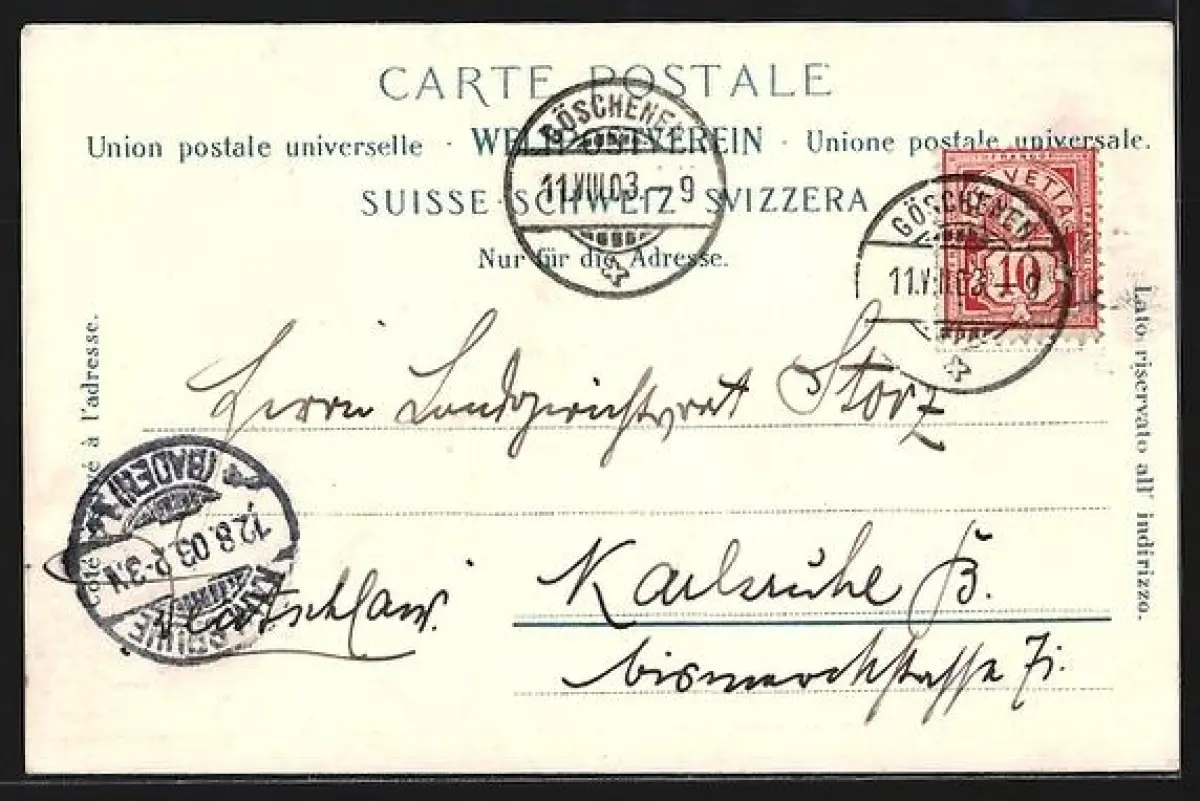 CARTE POSTALE
Union postale universelle · WELTPOSTVEREIN · Unione postale universale.
SUISSE·SCHWEIZ SVIZZERA
Nur für die Adresse.
GÖSCHENEN
11.VIII.03.–9
HELVETIA
10
GÖSCHENEN
11.VIII.03.–9
Herrn Landgerichtsrat Storz
Karlsruhe B.
Deutschland.
Bismarckstrasse
côté à l'adresse.
Lato riservato all' indirizzo.
KARLSRUHE
12.8.03.2-3.N
(BADEN)